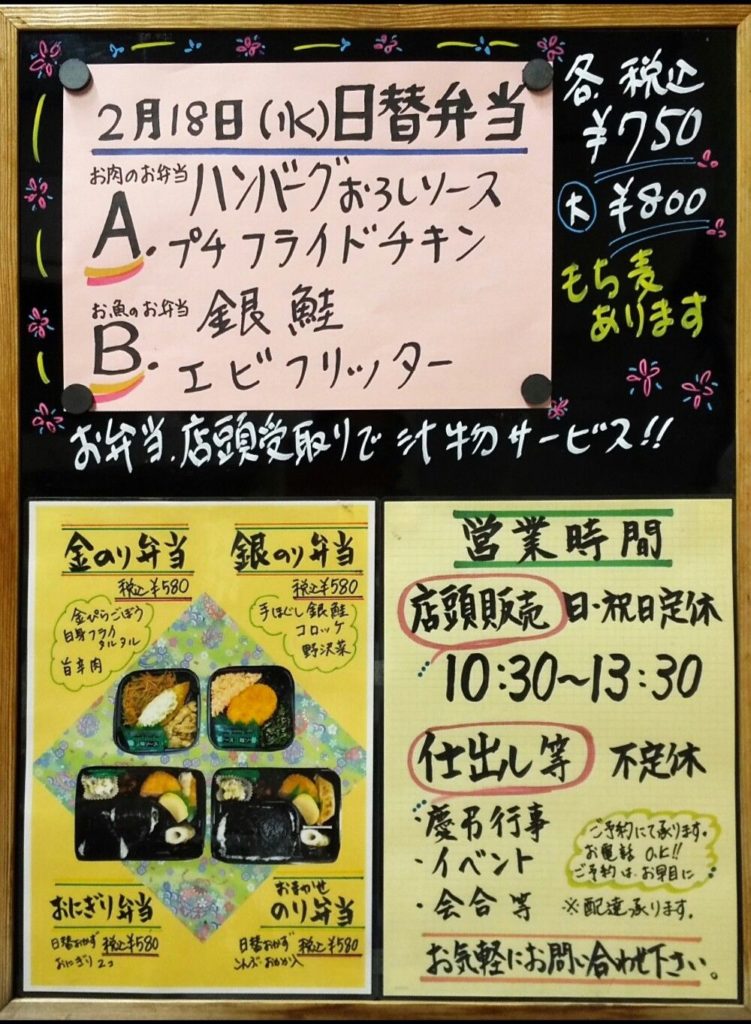 2月18日(水)日替弁当
お肉のお弁当
A. ハンバーグおろしソース
プチフライドチキン
お魚のお弁当
B. 銀鮭
エビフリッター
各 税込
¥750
大 ¥800
もち麦
あります
お弁当、店頭受取りで汁物サービス!!
金のり弁当
税込¥580
金ぴらごぼう
白身フライ
タルタル
旨辛肉
銀のり弁当
税込¥580
手ほぐし銀鮭
コロッケ
野沢菜
おにぎり弁当
日替おかず 税込¥580
おにぎり2コ
おまかせ
のり弁当
日替おかず 税込¥580
こんぶ・おかか入
営業時間
店頭販売 日・祝日定休
10:30〜13:30
仕出し等 不定休
・慶弔行事
・イベント
・会合等
ご予約にて承ります。
お電話O.K!!
ご予約は、お早目に
※配達承ります。
お気軽にお問い合わせ下さい。